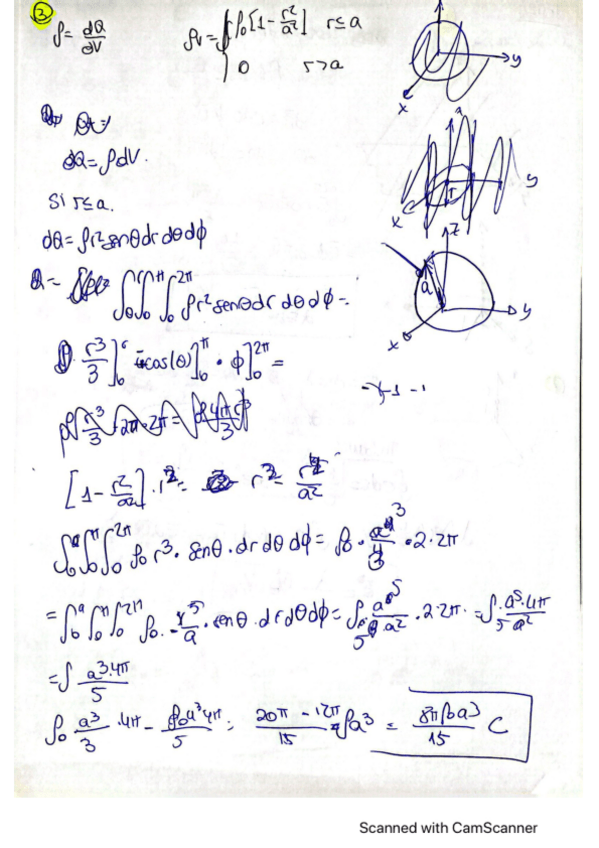 3
ρ = dQ/dV    ρv = { ρ0[1 - r²/a²]  r ≤ a
0  r > a
dQ = ρdV.
Si r ≤ a.
dQ = ρr² senθ dr dθ dφ
Q = ∫0^r ∫0^π ∫0^2π ρr² senθ dr dθ dφ =
ρ · r³/3 ]0^r · -cos(θ) ]0^π · φ ]0^2π =
[1 - r²/a²] · r² = r² = r⁴/a²
∫0^a ∫0^π ∫0^2π ρ0 r² · senθ · dr dθ dφ = ρ0 · a³/3 · 2 · 2π
= ∫0^a ∫0^π ∫0^2π ρ0 · senθ · dr dθ dφ = ρ0 a⁵/5a² · 2 · 2π = ρ · a⁵ · 4π/5 a²
= ρ a³ · 4π/5
ρ0 a³/3 · 4π - ρ0 a³ 4π/5 = 20π - 12π/15 ρa³ = 8πρ0a³/15 C
y
x
y
x
z
a
y
x
Scanned with CamScanner